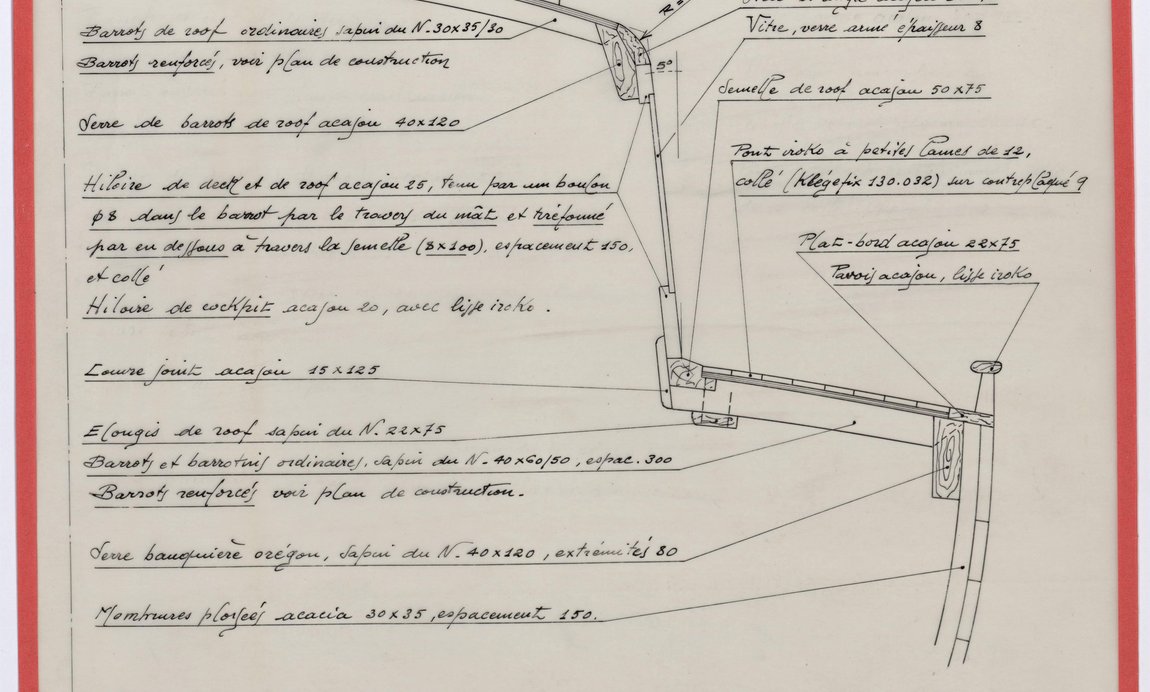 Barrots de roof ordinaires sapin du N. 30x35/30
Barrots renforcés, voir plan de construction
Serre de barrots de roof acajou 40x120
Hiloire de deck et de roof acajou 25, tenu par un boulon
φ8 dans le barrot par le travers du mât et tirefonné
par en dessous à travers la semelle (8x100), espacement 150,
et collé
Hiloire de cockpit acajou 20, avec lisse iroko.
Couvre joint acajou 15x125
Elongis de roof sapin du N. 22x75
Barrots et barrotins ordinaires, sapin du N. 40x60/50, espac. 300
Barrots renforcés voir plan de construction.
Serre bauquière orégon, sapin du N. 40x120, extrémités 80
Membrures ployées acacia 30x35, espacement 150.
5°
Vitre, verre armé épaisseur 8
Semelle de roof acajou 50x75
Pont iroko à petites lames de 12,
collé (Klégefix 130.032) sur contreplaqué 9
Plat-bord acajou 22x75
Pavois acajou, lisse iroko